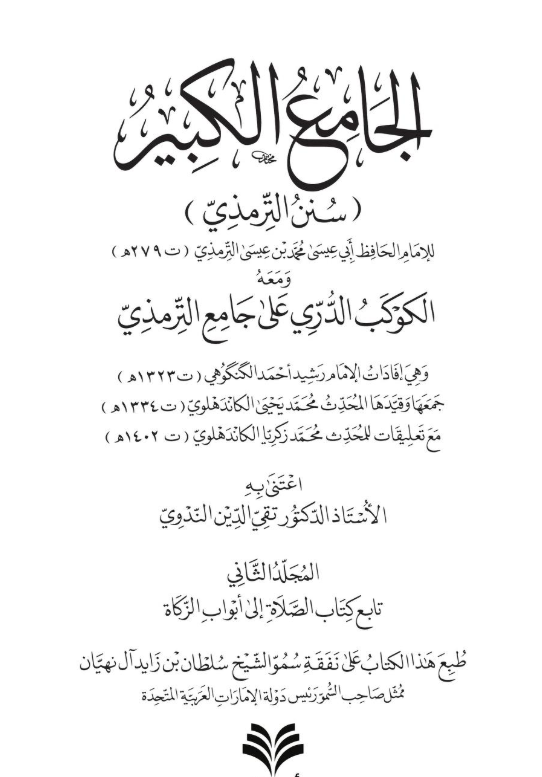 الجَامِعُ الكَبِيرُ
( سُنَنُ التِّرمذيّ )
للإمَامِ الحَافِظ أَبي عِيسَىٰ مُحمَّد بْن عِيسَىٰ التِّرمذيّ ( ت ٢٧٩هـ )
وَمَعَهُ
الكَوكَبُ الدُّرِّي عَلىٰ جَامِعِ التِّرمذيّ
وَهِيَ إفَادَاتُ الإمَام رَشِيد أحْمَد الگنگوهي ( ت ١٣٢٣هـ )
جَمَعَهَا وَقيَّدَهَا المُحَدِّثُ مُحَمَّد يَحْيَىٰ الكاندَهلويّ ( ت ١٣٣٤هـ )
مَعَ تَعليقَات للمُحَدِّث مُحَمَّد زكريّا الكاندَهلويّ ( ت ١٤٠٢هـ )
اعْتَنىٰ بِهِ
الأُسْتَاذ الدّكتُور تقيّ الدِّين النَّدويّ
المُجلّدُ الثَّاني
تابع كِتَاب الصَّلَاة إلىٰ أبْوَاب الزَّكَاة
طُبِعَ هَذا الكتابُ عَلىٰ نَفَقَةِ سُمُوّ الشَّيْخ سُلطَان بْن زَايد آل نهيَّان
مُمثّل صَاحِب السُّمُوّ رَئيس دَوْلَة الإمَارَاتِ العَرَبيَّة المتّحِدَة